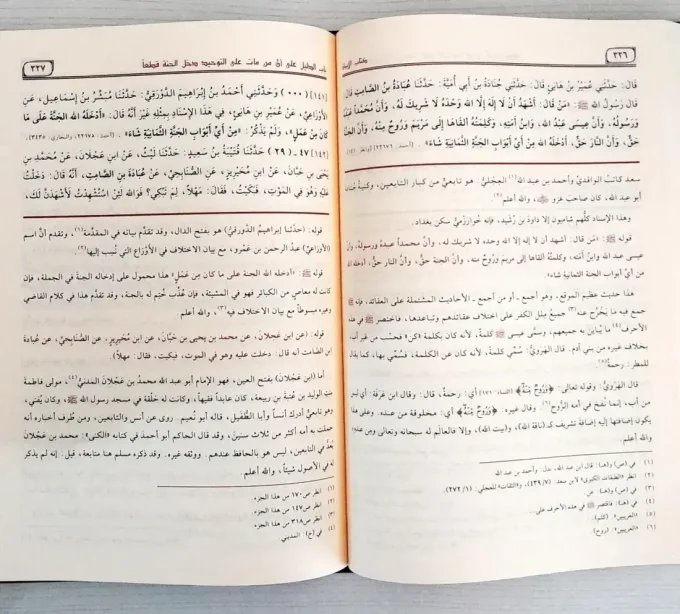 ٢٢٦
كتاب الإيمان
قَالَ: حَدَّثَنِي عُمَيْرُ بْنُ هَانِئٍ قَالَ: حَدَّثَنِي جُنَادَةُ بْنُ أَبِي أُمَيَّةَ: حَدَّثَنَا عُبَادَةُ بْنُ الصَّامِتِ قَالَ:
قَالَ رَسُولُ اللهِ ﷺ: «مَنْ قَالَ: أَشْهَدُ أَنْ لَا إِلَهَ إِلَّا اللهُ وَحْدَهُ لَا شَرِيكَ لَهُ، وَأَنَّ مُحَمَّداً عَبْدُهُ
وَرَسُولُهُ، وَأَنَّ عِيسَى عَبْدُ اللهِ، وَابْنُ أَمَتِهِ، وَكَلِمَتُهُ أَلْقَاهَا إِلَى مَرْيَمَ وَرُوحٌ مِنْهُ، وَأَنَّ الجَنَّةَ
حَقٌّ، وَأَنَّ النَّارَ حَقٌّ، أَدْخَلَهُ اللهُ مِنْ أَيِّ أَبْوَابِ الجَنَّةِ الثَّمَانِيَةِ شَاءَ». [أحمد: ٢٢٦٧٦]
سعد كاتبُ الواقدي ومحمد بن عبد الله(١) العِجْلي: هو تابعيٌّ من كبار التابعين، وكنية
أبو عبد الله، كان صاحبَ غزو ﷺ، والله أعلم(٢).
وهذا الإسناد كلُّهم شاميون إلا داودَ بن رُشيد، فإنه خُوارزميٌّ سكن بغداد.
قوله ﷺ: «من قال: أشهد أن لا إله إلا الله وحده لا شريك له، وأنَّ محمداً عبدُه ورسولُه، وأنَّ
عيسى عبدُ الله وابنُ أمته، وكلمتُه ألقاها إلى مريم وروحٌ منه، وأنَّ الجنَّةَ حقٌّ، وأنَّ النَّار حقٌّ، أدخله الله
من أيِّ أبواب الجنة الثمانية شاء».
هذا حديث عظيم الموقع، وهو أجمع ـ أو من أجمع ـ الأحاديث المشتملة على العقائد، فإنه ﷺ
جمع فيه ما يَخْرج عنه(٣) جميعُ مِلل الكفر على اختلاف عقائدهم وتباعدها، فاختصر ﷺ في هذه
الأحرف(٤) ما يُباين به جميعَهم، وسمَّى عيسى ﷺ كلمةً، لأنه كان بكلمة «كن» فحسب من غير أب،
بخلاف غيره من بني آدم. قال الهَرَويُّ: سُمِّي كلمةً، لأنه كان عن الكلمة، فسُمِّي بها، كما يقال
للمطر: رحمة(٥)
قال الهَرَويُّ: وقوله تعالى: ﴿وَرُوحٌ مِّنْهُ﴾ [النساء: ١٧١] أي: رحمةٌ، قال: وقال ابن عَرَفة: أي ليس
من أب، إنما نُفخ في أمه الرُّوح(٦). وقال غيره: ﴿وَرُوحٌ مِّنْهُ﴾ أي: مخلوقة من عنده. وعلى هذا
يكون إضافتها إليه إضافةَ تشريف كـ(ناقة الله)، (وبيت الله)، وإلا فالعالَم له سبحانه وتعالى ومن عنده
والله أعلم.
(١) في (ص) و(هـ): قال ابن عبد الله، بدل: وأحمد بن عبد الله
(٢) انظر «الطبقات الكبرى» لابن سعد: (٤٣٩/٧)، و«الثقات» للعجلي: (٢٧٢/١)
(٣) في (ص) و(هـ): عن
(٤) في (هـ): فاقتصر ﷺ في هذه الأحرف على...
(٥) «الغريبين»: (كلم).
(٦) «الغريبين»: (روح)
باب الدليل على أن من مات على التوحيد دخل الجنة قطعاً
٢٢٧
[١٤١] (٠٠٠) وحَدَّثَنِي أَحْمَدُ بْنُ إِبْرَاهِيمَ الدَّوْرَقِيُّ: حَدَّثَنَا مُبَشِّرُ بْنُ إِسْمَاعِيلَ، عَنِ
الأَوْزَاعِيِّ، عَنْ عُمَيْرِ بْنِ هَانِئٍ، فِي هَذَا الإِسْنَادِ بِمِثْلِهِ غَيْرَ أَنَّهُ قَالَ: «أَدْخَلَهُ اللهُ الجَنَّةَ عَلَى مَا
كَانَ مِنْ عَمَلٍ»، وَلَمْ يَذْكُرْ: «مِنْ أَيِّ أَبْوَابِ الجَنَّةِ الثَّمَانِيَةِ شَاءَ». [أحمد: ٢٢٦٧٥، والبخاري: ٣٤٣٥].
[١٤٢] ٤٧ ـ (٢٩) حَدَّثَنَا قُتَيْبَةُ بْنُ سَعِيدٍ: حَدَّثَنَا لَيْثٌ، عَنِ ابْنِ عَجْلَانَ، عَنْ مُحَمَّدِ بْنِ
يَحْيَى بْنِ حَبَّانَ، عَنِ ابْنِ مُحَيْرِيزٍ، عَنِ الصُّنَابِحِيِّ، عَنْ عُبَادَةَ بْنِ الصَّامِتِ، أَنَّهُ قَالَ: دَخَلْتُ
عَلَيْهِ وَهُوَ فِي المَوْتِ، فَبَكَيْتُ، فَقَالَ: مَهْلاً، لِمَ تَبْكِي؟ فَوَاللهِ لَئِنِ اسْتُشْهِدْتُ لَأَشْهَدَنَّ لَكَ،
قوله: (حدَّثنا إبراهيمُ الدَّوْرَقيُّ) هو بفتح الدال، وقد تقدَّم بيانه في المقدِّمة(١)، وتقدم أنَّ اسم
(الأوزاعيِّ) عبدُ الرحمن بن عَمْرو، مع بيان الاختلاف في الأَوْزاع التي نُسب إليها(٢).
قوله ﷺ: «أدخله الله الجنةَ على ما كان من عَمَلٍ» هذا محمول على إدخاله الجنةَ في الجملة، فإن
كانت له معاصٍ من الكبائر فهو في المشيئة، فإن عُذِّب خُتم له بالجنة، وقد تقدَّم هذا في كلام القاضي
وغيره مبسوطاً مع بيان الاختلاف فيه(٣)، والله أعلم.
قوله: (عن ابن عجلان، عن محمد بن يحيى بن حَبَّان، عن ابن مُحَيريزٍ، عن الصُّنابِحيِّ، عن عُبادةَ
ابن الصامت أنه قال: دخلت عليه وهو في الموت، فبكيت، فقال: مهلاً)
أما (ابنُ عَجْلانَ) بفتح العين، فهو الإمام أبو عبد الله محمدُ بن عَجْلانَ المَدنيُّ(٤)، مولى فاطمةَ
بنتِ الوليد بن عُتبةَ بن ربيعة، كان عابداً فقيهاً، وكانت له حَلْقة في مسجد رسول الله ﷺ، وكان يُفتي،
وهو تابعيٌّ أدرك أنساً وأبا الطُّفيل، قاله أبو نُعيم. روى عن أنس والتابعين، ومن طُرَف أخباره أنه
حملت به أمه أكثر من ثلاث سنين. وقد قال الحاكم أبو أحمدَ في كتابه «الكنى»: محمد بن عَجْلانَ
يُعَدُّ في التابعين، ليس هو بالحافظ عندهم. ووثقه غيره. وقد ذكره مسلم هنا متابعة، قيل: إنه لم يذكر
له في الأصول شيئاً، والله أعلم.
(١) انظر ص١٧٠ من هذا الجزء.
(٢) انظر ص١٤٧ من هذا الجزء.
(٣) انظر ص٣١٨ من هذا الجزء.
(٤) في (خ): المديني